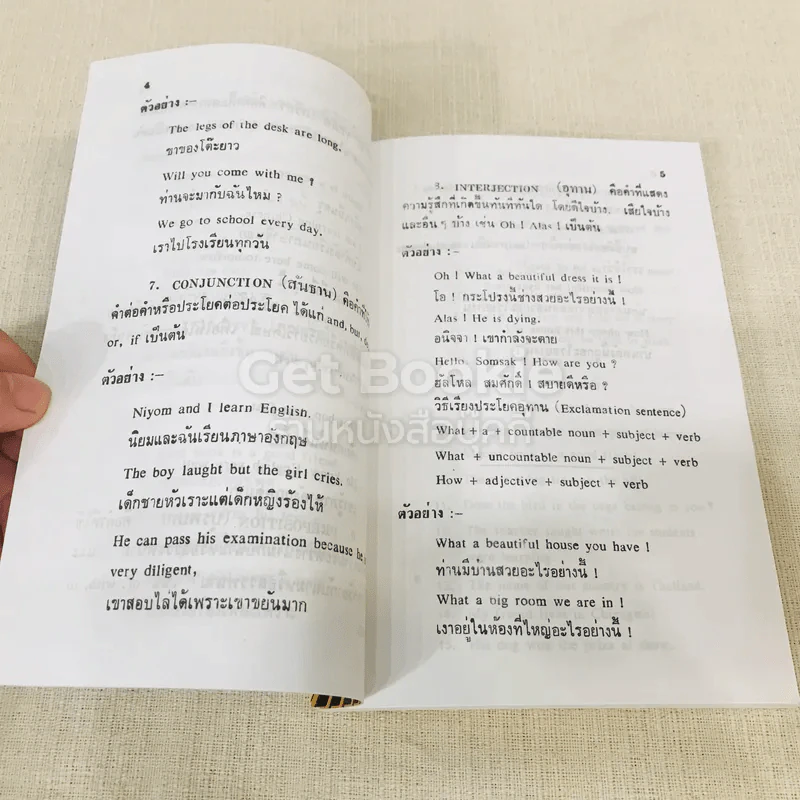 4
ตัวอย่าง :–
The legs of the desk are long.
ขาของโต๊ะยาว
Will you come with me ?
ท่านจะมากับฉันไหม ?
We go to school every day.
เราไปโรงเรียนทุกวัน
7. CONJUNCTION (สันธาน) คือคำที่
คำต่อคำหรือประโยคต่อประโยค ได้แก่ and, but,
or, if เป็นต้น
ตัวอย่าง :–
Niyom and I learn English.
นิยมและฉันเรียนภาษาอังกฤษ
The boy laught but the girl cries.
เด็กชายหัวเราะแต่เด็กหญิงร้องไห้
He can pass his examination because he
very diligent,
เขาสอบไล่ได้เพราะเขาขยันมาก
5
8. INTERJECTION (อุทาน) คือคำที่แสดง
ความรู้สึกที่เกิดขึ้นทันทีทันใด โดยดีใจบ้าง, เสียใจบ้าง
และอื่นๆ บ้าง เช่น Oh ! Alas ! เป็นต้น
ตัวอย่าง :–
Oh ! What a beautiful dress it is !
โอ ! กระโปรงนี้ช่างสวยอะไรอย่างนี้ !
Alas ! He is dying.
อนิจจา ! เขากำลังจะตาย
Hello, Somsak ! How are you ?
ฮัลโหล สมศักดิ์ ! สบายดีหรือ ?
วิธีเรียงประโยคอุทาน (Exclamation sentence)
What + a + countable noun + subject + verb
What + uncountable noun + subject + verb
How + adjective + subject + verb
ตัวอย่าง :–
What a beautiful house you have !
ท่านมีบ้านสวยอะไรอย่างนี้ !
What a big room we are in !
เราอยู่ในห้องที่ใหญ่อะไรอย่างนี้ !
Get Bookie
ร้านหนังสือบุ๊คกี้